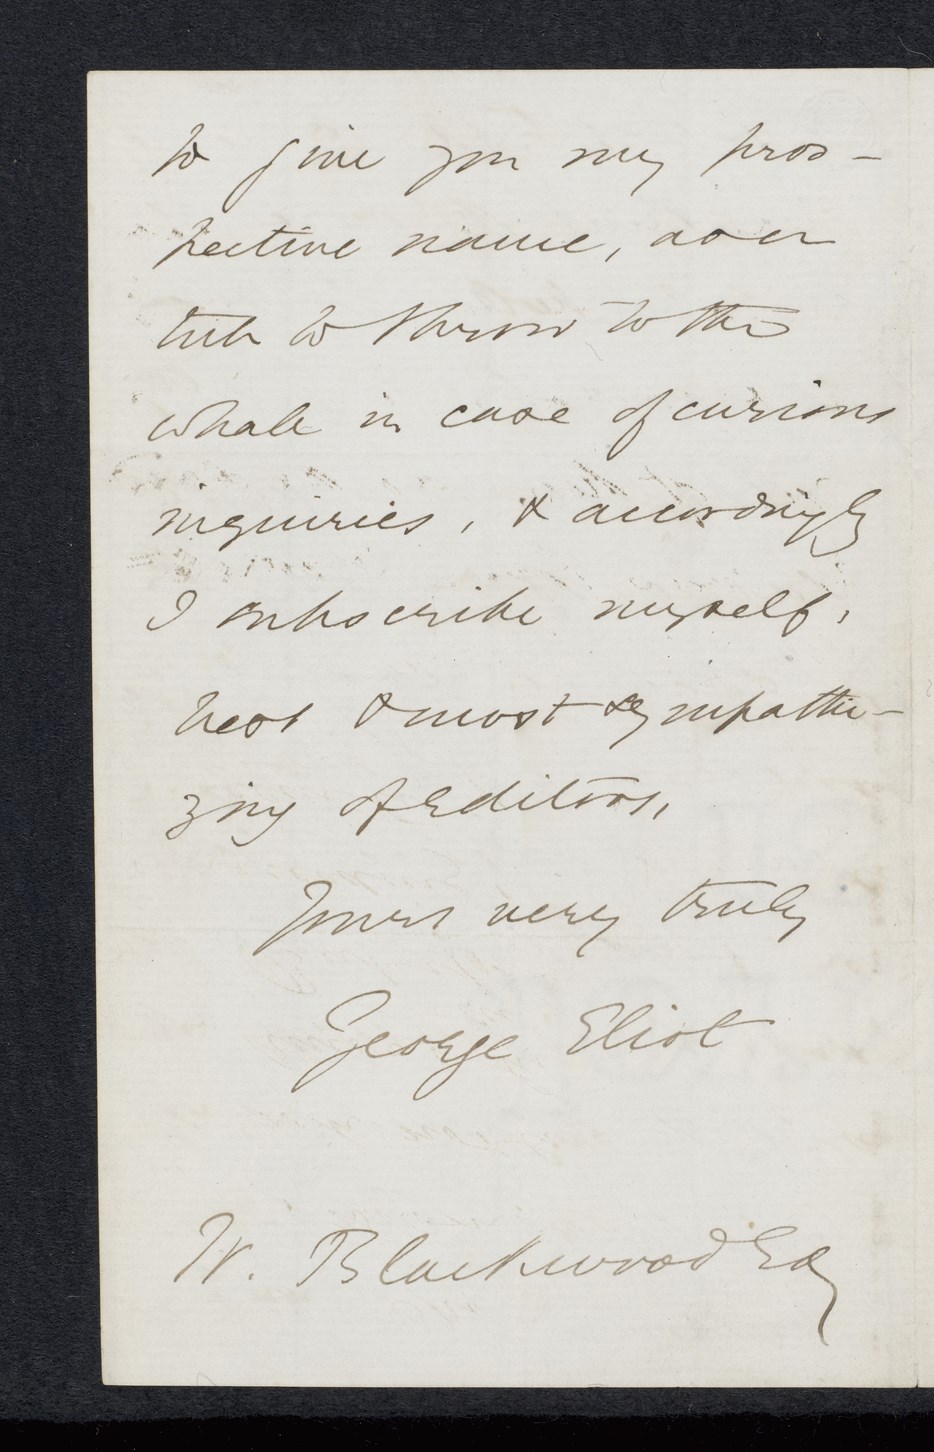 to give you my pros-
pective name, as a
tub to throw to the
whale in case of curious
inquiries, & accordingly
I subscribe myself,
best & most sympathi-
zing of editors,
Yours very truly
George Eliot
W. Blackwood Esq